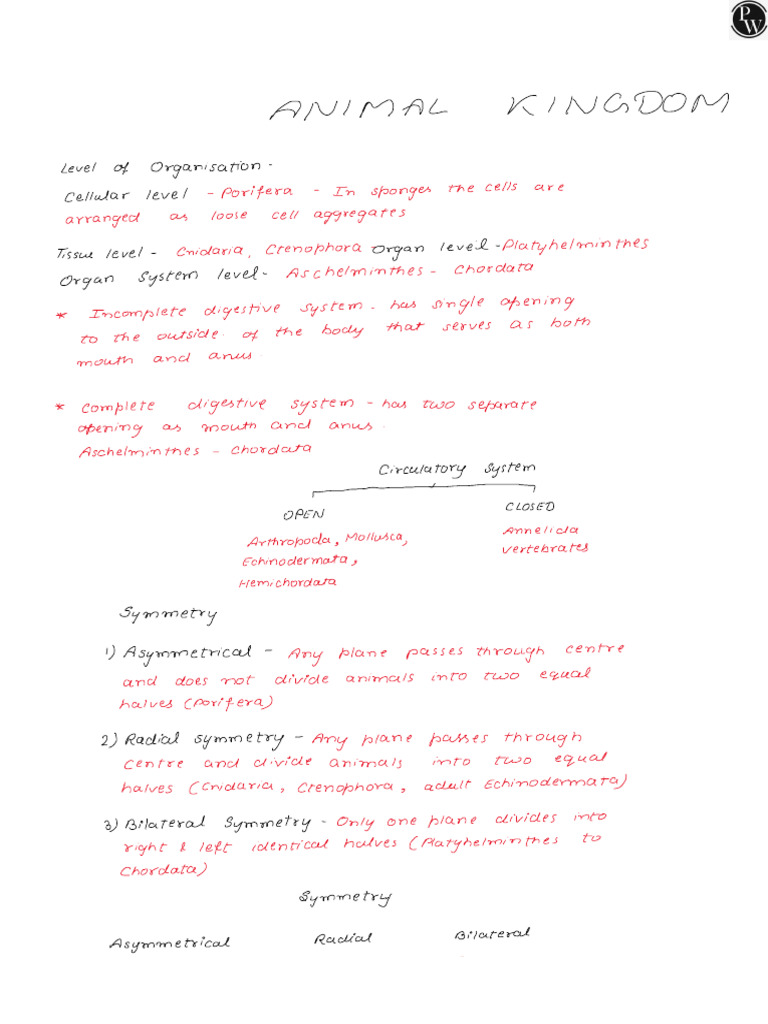 PW
ANIMAL KINGDOM
Level of Organisation -
Cellular level - Porifera - In sponges the cells are
arranged as loose cell aggregates
Tissue level - Cnidaria, Ctenophora Organ level - Platyhelminthes
Organ System level - Aschelminthes - Chordata
* Incomplete digestive system - has single opening
to the outside of the body that serves as both
mouth and anus.
* Complete digestive system - has two separate
opening as mouth and anus.
Aschelminthes - Chordata
Circulatory System
OPEN CLOSED
Arthropoda, Mollusca, Annelida
Echinodermata, Vertebrates
Hemichordata
Symmetry
1) Asymmetrical - Any plane passes through centre
and does not divide animals into two equal
halves (Porifera)
2) Radial symmetry - Any plane passes through
centre and divide animals into two equal
halves (Cnidaria, Ctenophora, adult Echinodermata)
3) Bilateral Symmetry - Only one plane divides into
right & left identical halves (Platyhelminthes to
Chordata)
Symmetry
Asymmetrical Radial Bilateral